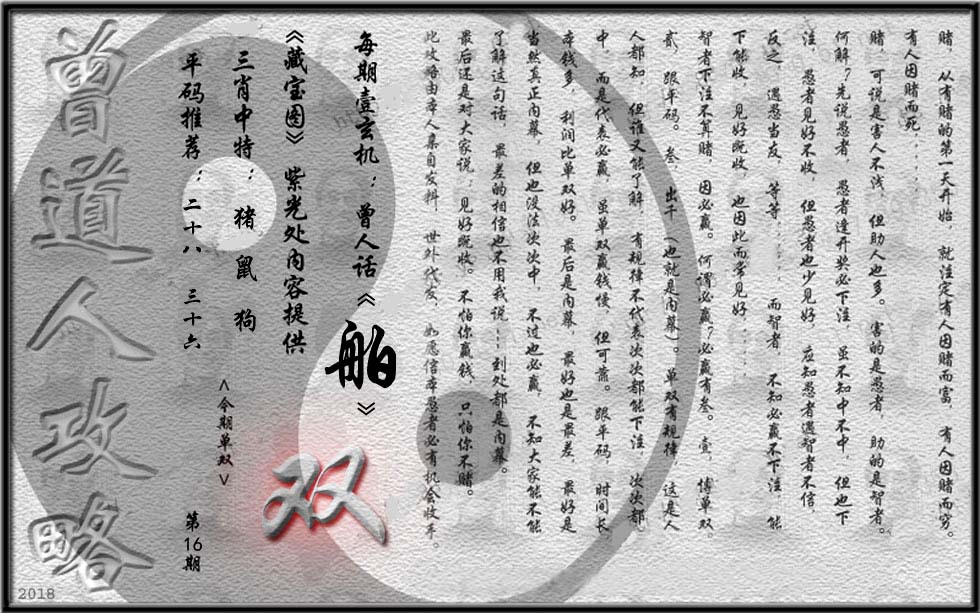 赌，从有赌的第一天开始，就注定有人因赌而富，有人因赌而穷。
有人因赌而死．．．．．
赌，可说是害人不浅，但助人也多。害的是愚者，助的是智者。
何解？先说愚者，愚者逢开奖必下注，虽不知中不中，但也下
注，愚者见好不收，但愚者也少见好，应知愚者遇智者不信，
反之，遇愚当友，等等．．．．．．而智者，不知必赢不下注，能
下能收，见好既收，也因此而常见好．．．．．
智者下注不算赌，因必赢。何谓必赢？必赢有叁。壹，博单双，
贰，跟平码。叁，出千（也就是内幕）。单双有规律，这是人
人都知，但谁又能了解，有规律不代表次次都能下注，次次都
中，而是代表必赢，虽单双赢钱慢，但可靠。跟平码，时间长，
本钱多，利润比单双好。最后是内幕，最好也是最差，最好是
当然真正内幕，但也没法次次中，不过也必赢，不知大家能不能
了解这句话，最差的相信也不用我说……到处都是内幕。
最后还是对大家说：见好既收。不怕你赢钱，只怕你不赌。
此攻略由本人亲自发料，世外代友，如愿信本愚者必有机会收手。
每期壹玄机：曾人话《船》
《藏宝图》紫光处内容提供
三肖中特：猪 鼠 狗
平码推荐：二十八 三十六
＜今期单双＞
双
第16期
曾道人攻略
2018